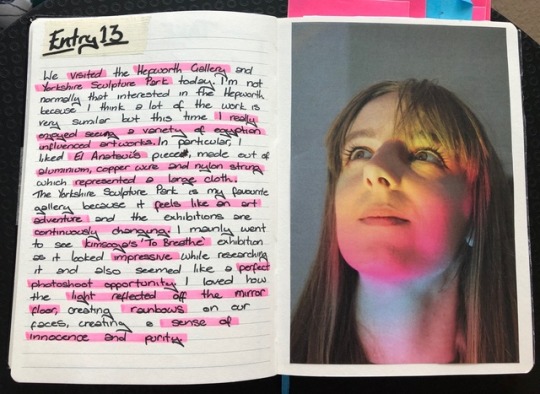 Entry 13
We visited the Hepworth Gallery and
Yorkshire Sculpture Park today. I'm not
normally that interested in the Hepworth
because I think a lot of the work is
very similar but this time I really
enjoyed seeing a variety of egyption
influenced artworks. In particular, I
liked El Anatsui's piece, made out of
aluminium, copper wire and nylon strung
which represented a large cloth.
The Yorkshire Sculpture Park is my favourite
gallery because it feels like an art
adventure and the exhibitions are
continuously changing. I mainly went
to see Kimsooja's 'To Breathe' exhibition
as it looked impressive while researching
it and also seemed like a perfect
photoshoot opportunity. I loved how
the light reflected off the mirror
floor, creating rainbows on our
faces, creating a sense of
innocence and purity